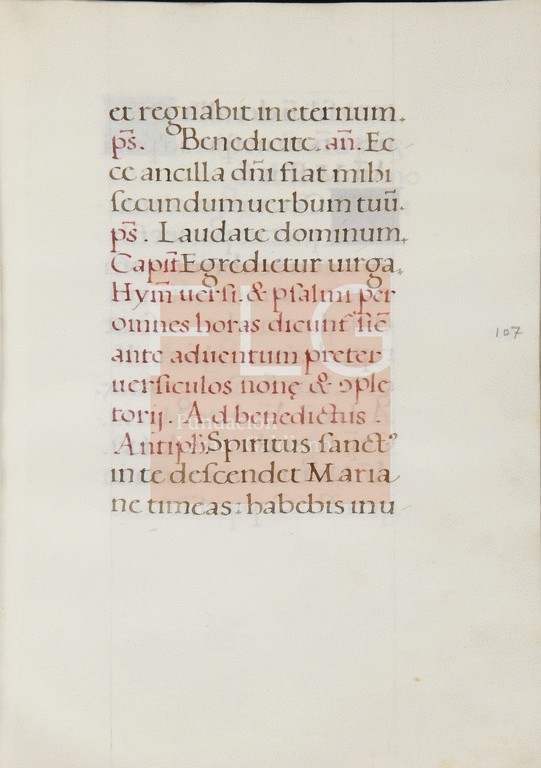 et regnabit in eternum.
ps̄. Benedicite. an̄. Ec
ce ancilla dn̄i fiat mihi
secundum uerbum tuū.
ps̄. Laudate dominum.
Capit̄. Egredietur uirga.
Hym̄ uersi. & psalmi per
omnes horas dicunt᷑ sic̄
ante aduentum preter
uersiculos nonę & ɔple
torij. Ad benedictus.
Antiph. Spiritus sanctꝰ
in te descendet Maria
ne timeas: habebis in u
107
FLG
Fundación